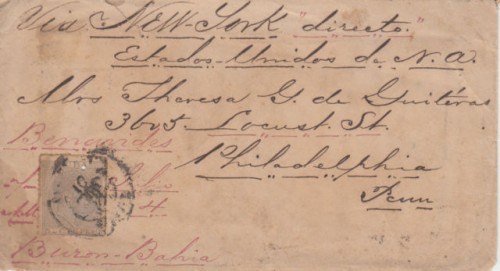 Via New-York "directo."
Estados-Unidos de N.A.
Mrs Theresa G. de Guitéras
3605. Locust. St.
Philadelphia
Penn
4
Buron-Bahia